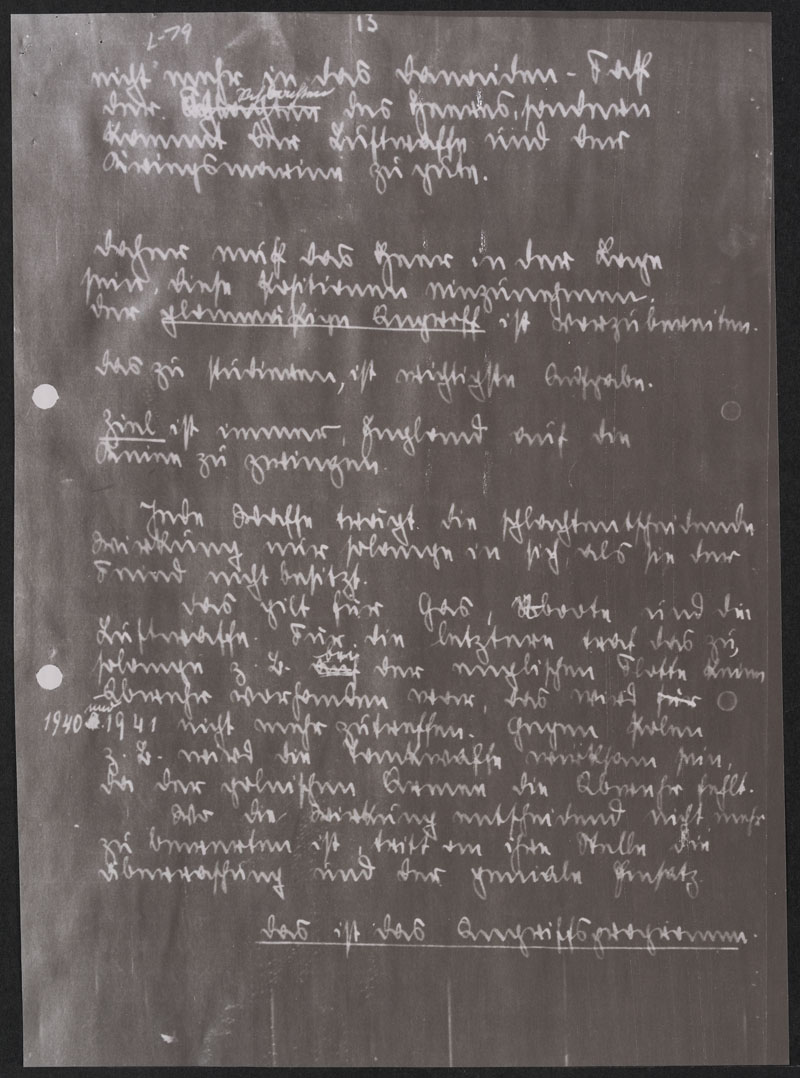 L-79
13
nicht mehr in das Danaiden-Faß
der des Heeres, sondern
kommt der Luftwaffe und der
Kriegsmarine zu gute.
Daher muß das Heer in der Lage
sein, diese Positionen einzunehmen,
der planmäßige Angriff ist vorzubereiten.
Das zu studieren, ist wichtigste Aufgabe.
Ziel ist immer, England auf die
Kniee zu zwingen.
Jede Waffe trägt die schlachtentscheidende
Wirkung nur solange in sich, als sie der
Feind nicht besitzt.
Das gilt für Gas, Uboote und die
Luftwaffe. Für die letztere traf das zu,
solange z.B. bei der englischen Flotte keine
Abwehr vorhanden war, das wird für
1940 und 1941 nicht mehr zutreffen. Gegen Polen
z.B. wird die Tankwaffe wirksam sein,
da der polnischen Armee die Abwehr fehlt.
Wo die Wirkung entscheidend nicht mehr
zu bewerten ist, tritt an ihre Stelle die
Überraschung und der geniale Einsatz.
Das ist das Angriffsprogramm.